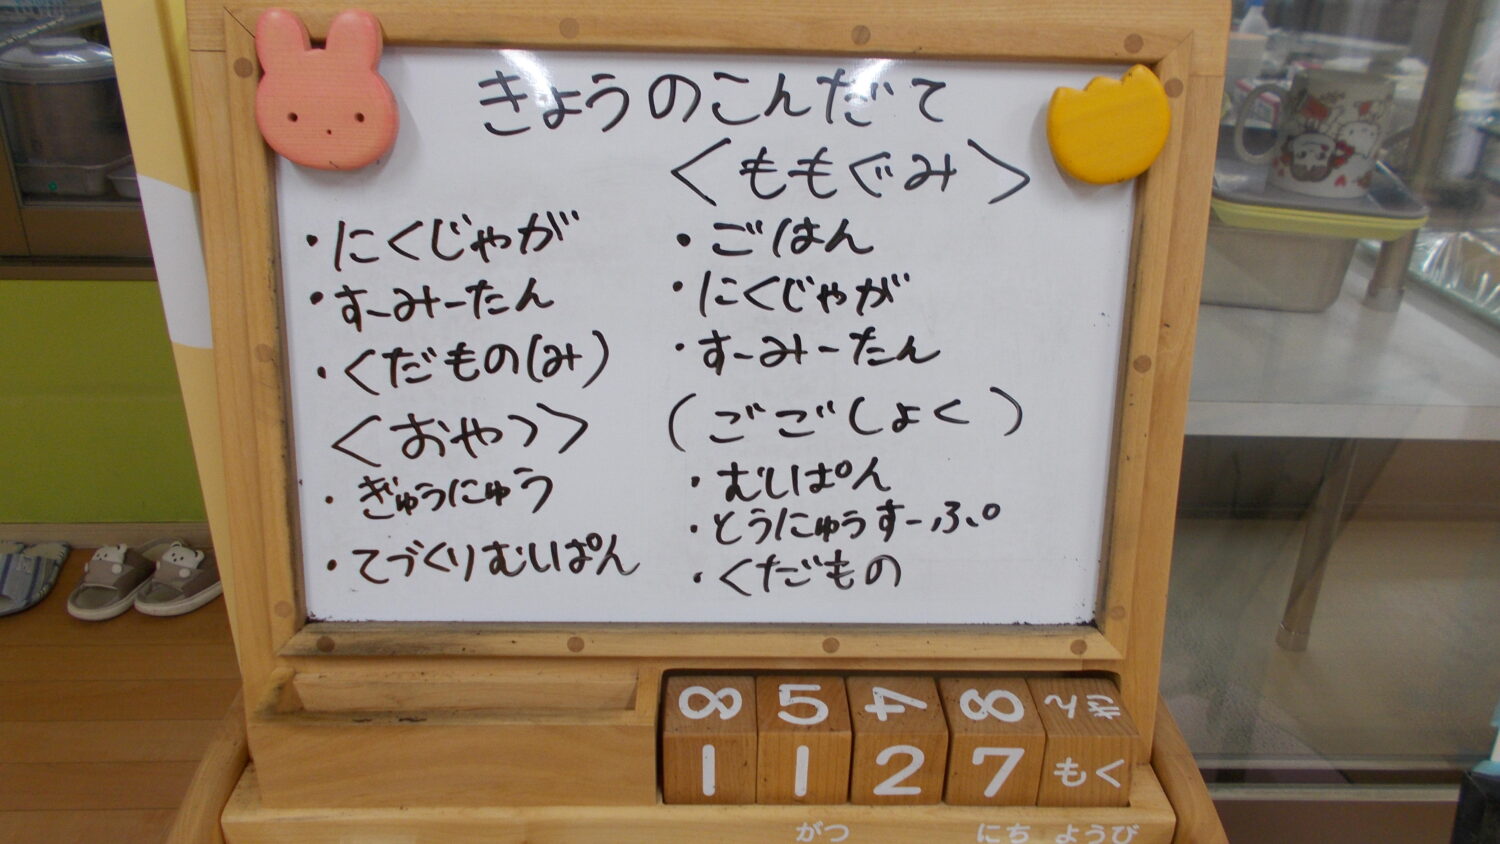 きょうのこんだて
・にくじゃが
・すーみーたん
・くだもの(み)
<おやつ>
・ぎゅうにゅう
・てづくりむしぱん
<ももぐみ>
・ごはん
・にくじゃが
・すーみーたん
(ごごしょく)
・むしぱん
・とうにゅうすーぷ
・くだもの
8 5 4 8
1 1 2 7 もく
がつ にち ようび